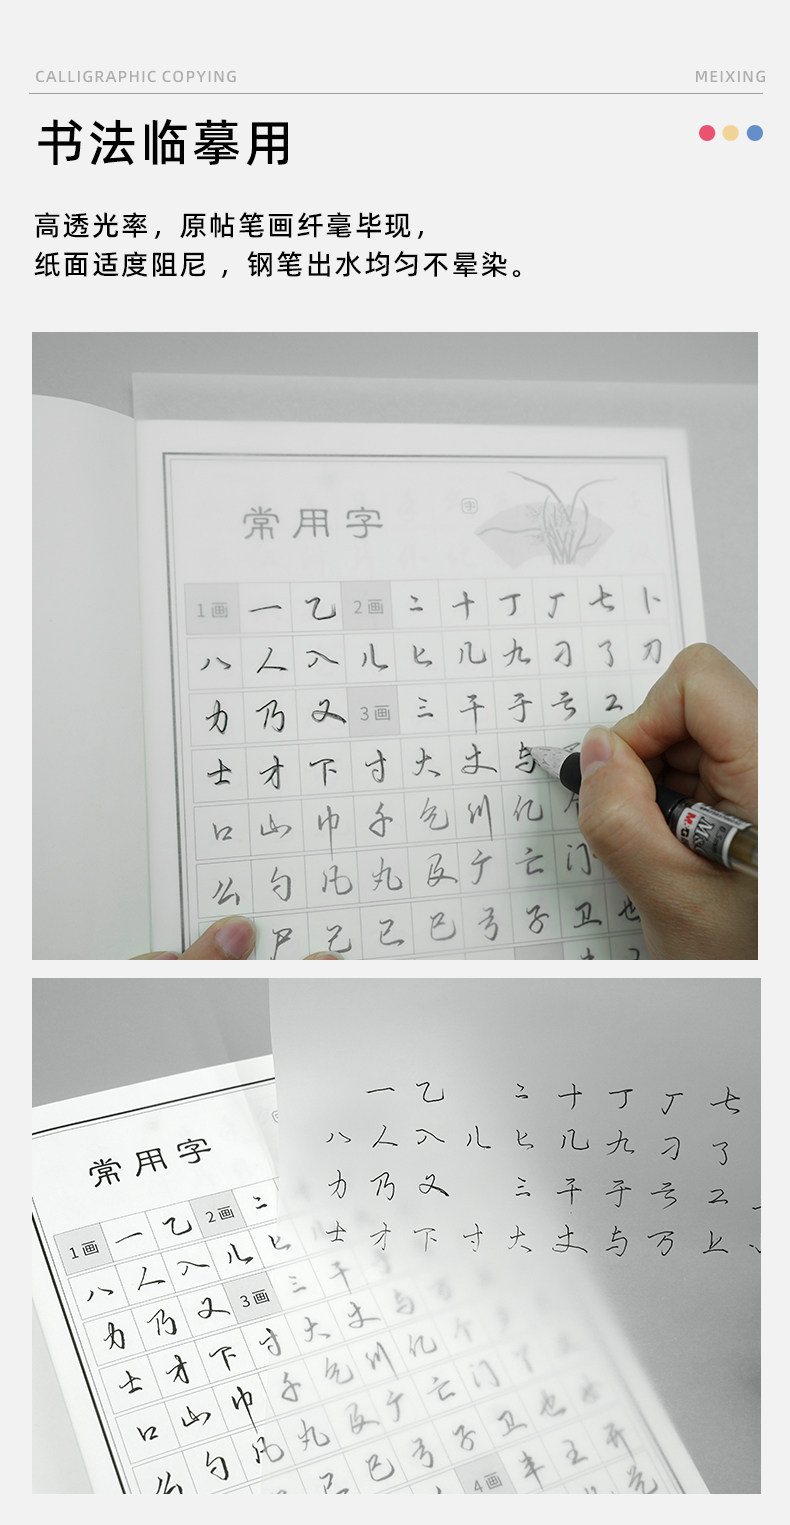 CALLIGRAPHIC COPYING
MEIXING
书法临摹用
高透光率，原帖笔画纤毫毕现，
纸面适度阻尼 ，钢笔出水均匀不晕染。
常用字
字
1画 一 乙 2画 二 十 丁 厂 七 卜
八 人 入 儿 匕 几 九 刁 了 刀
力 乃 又 3画 三 干 于 亏 工
士 才 下 寸 大 丈 与
口 山 巾 千 乞 川 亿 个
么 勺 凡 丸 及 广 亡 门
尸 己 已 巳 弓 子 卫 也
一 乙 二 十 丁 厂 七
八 人 入 儿 匕 几 九 刁 了
力 乃 又 三 干 于 亏 工
士 才 下 寸 大 丈 与 万 上
常用字
1画 一 乙 2画 二
八 人 入 儿 匕
力 乃 又 3画 三 干
士 才 下 寸 大 丈 与
口 山 巾 千 乞 川 亿 个
么 勺 凡 丸 及 广 亡 门
己 巳 弓 子 卫 也
4画 丰 王 开